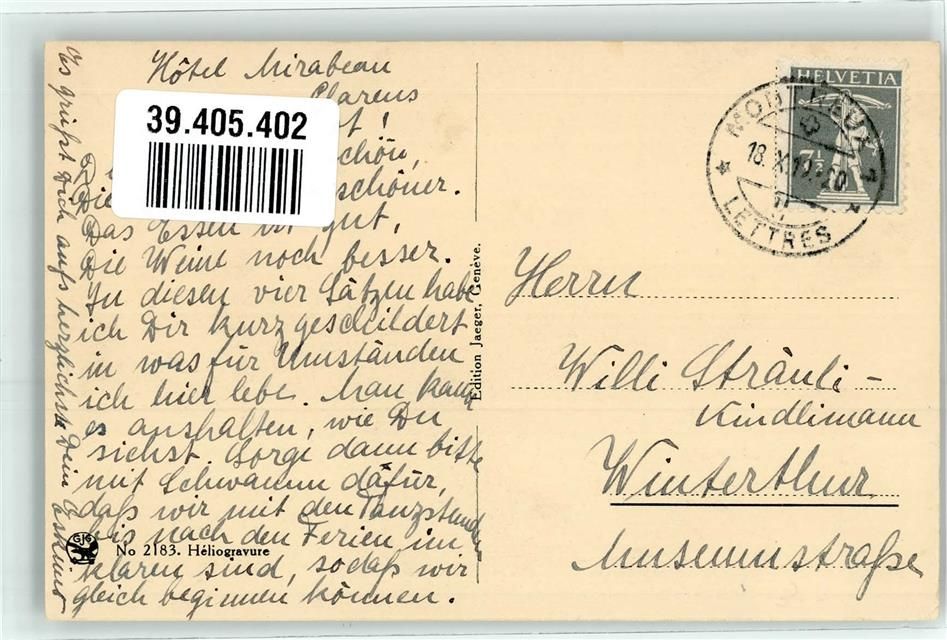 Hôtel Mirabeau
Clarens
39.405.402
st!
schön,
Die schöner.
Das Essen ist gut,
Die Weine noch besser.
In diesen vier Sätzen habe
ich Dir kurz geschildert
in was für Umständen
ich hier lebe. Man kann
es aushalten, wie Du
siehst. Sorge dann bitte
mit Schwamm dafür,
daß wir mit den Tanzstunden
bis nach den Ferien im
klaren sind, sodaß wir
gleich beginnen können.
Es grüßt Dich aufs herzlichste Dein
GJG
No 2183. Héliogravure
Edition Jaeger, Genève.
HELVETIA
7½
MONTREUX 1
18.X.19.-20
LETTRES
Herrn
Willi Sträuli-
Kindlimann
Winterthur
Museumstraße